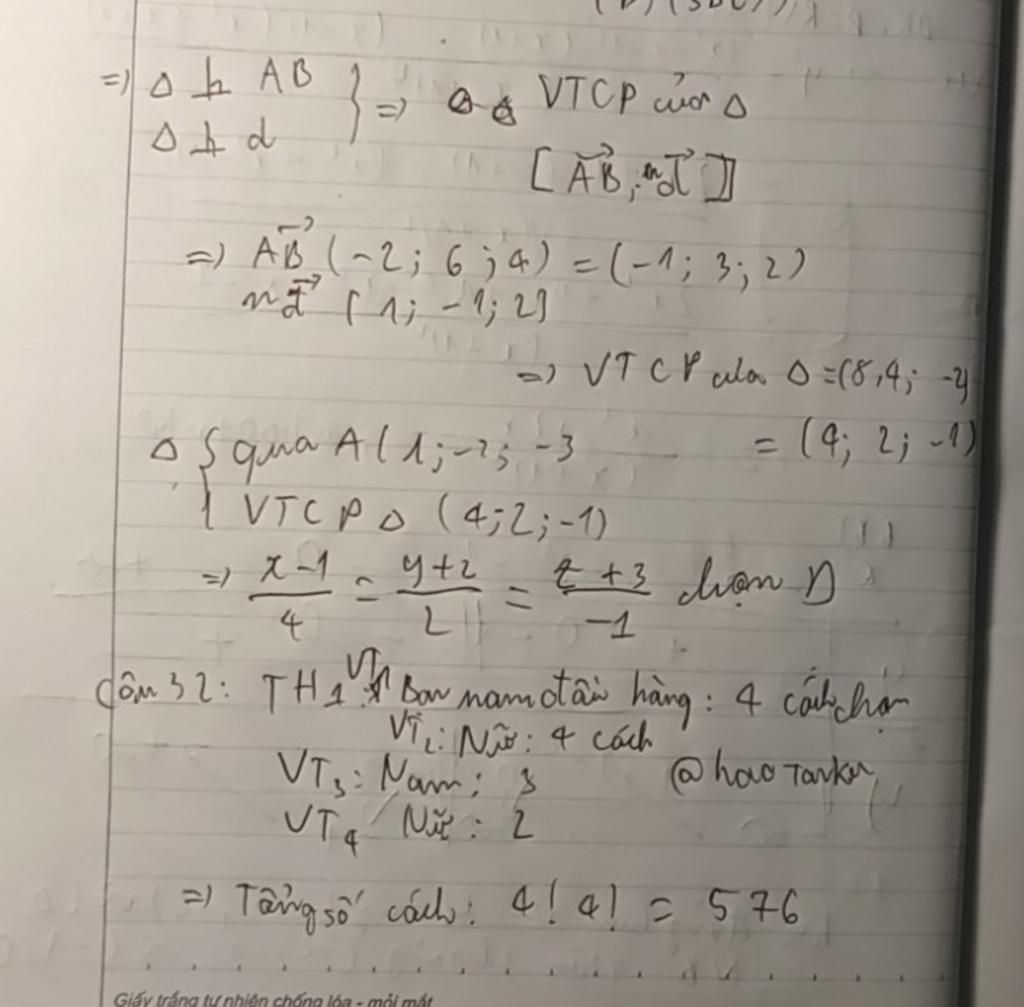 => Δ ⊥ AB
Δ ⊥ d
} => VTCP của Δ
[AB⃗; n d⃗]
=> AB⃗ (-2; 6; 4) = (-1; 3; 2)
n d⃗ (1; -1; 2)
=> VTCP của Δ = (8, 4; -2)
= (4; 2; -1)
Δ { qua A(1; -2; -3
VTCP Δ (4; 2; -1)
=> x-1/4 = y+2/2 = z+3/-1 chọn D
Câu 32: TH1: VT1 Bạn nam đầu hàng: 4 cách chọn
VT2: Nữ: 4 cách
VT3: Nam: 3
@haoTanker
VT4 Nữ: 2
=> Tổng số cách: 4! 4! = 576
Giấy trắng tự nhiên chống lóa - mỏi mắt